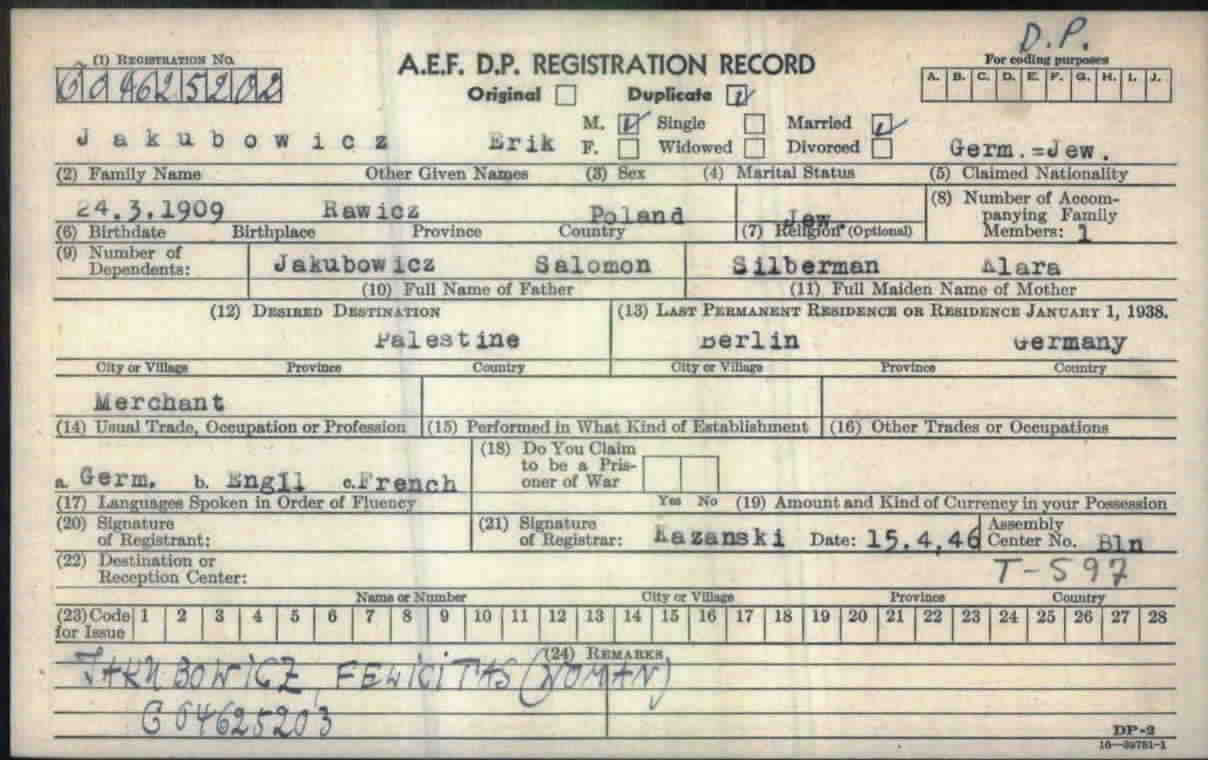 D.P.
(1) Registration No.
A.E.F. D.P. REGISTRATION RECORD
For coding purposes
G04625202
Original Duplicate
A. B. C. D. E. F. G. H. I. J.
M. Single Married
Jakubowicz Erik F. Widowed Divorced Germ.=Jew.
(2) Family Name Other Given Names (3) Sex (4) Marital Status (5) Claimed Nationality
24.3.1909 Rawicz Poland Jew.
(6) Birthdate Birthplace Province Country (7) Religion (Optional)
(8) Number of Accom-
panying Family
Members: 1
(9) Number of
Dependents:
Jakubowicz Salomon Silberman Alara
(10) Full Name of Father (11) Full Maiden Name of Mother
(12) Desired Destination (13) Last Permanent Residence or Residence January 1, 1938.
Palestine Berlin Germany
City or Village Province Country City or Village Province Country
Merchant
(14) Usual Trade, Occupation or Profession (15) Performed in What Kind of Establishment (16) Other Trades or Occupations
(18) Do You Claim
to be a Pris-
oner of War
a. Germ. b. Engil c. French
(17) Languages Spoken in Order of Fluency Yes No (19) Amount and Kind of Currency in your Possession
(20) Signature
of Registrant:
(21) Signature
of Registrar: Kazanski Date: 15.4.46
Assembly
Center No. Bln
(22) Destination or
Reception Center:
T-597
Name or Number City or Village Province Country
(23) Code
for Issue
1 2 3 4 5 6 7 8 9 10 11 12 13 14 15 16 17 18 19 20 21 22 23 24 25 26 27 28
(24) Remarks
JAKUBOWICZ FELICITAS (WOMAN)
G 04625203
DP-2
16—39781-1